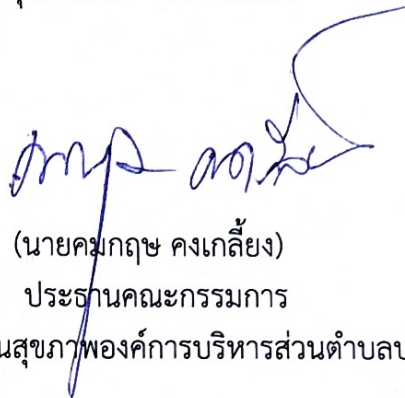 (นายคมกฤษ คงเกลี้ยง)
ประธานคณะกรรมการ
นสุขภาพองค์การบริหารส่วนตำบล